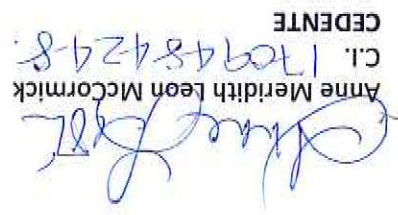 Anne Meridith Leon McCormick
C.I. 170948424-8.
CEDENTE